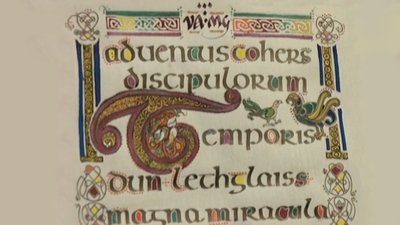 VA·MG
aduentus cohers
discipulorum
Temporis
dun·lethglaiss
magna miracula